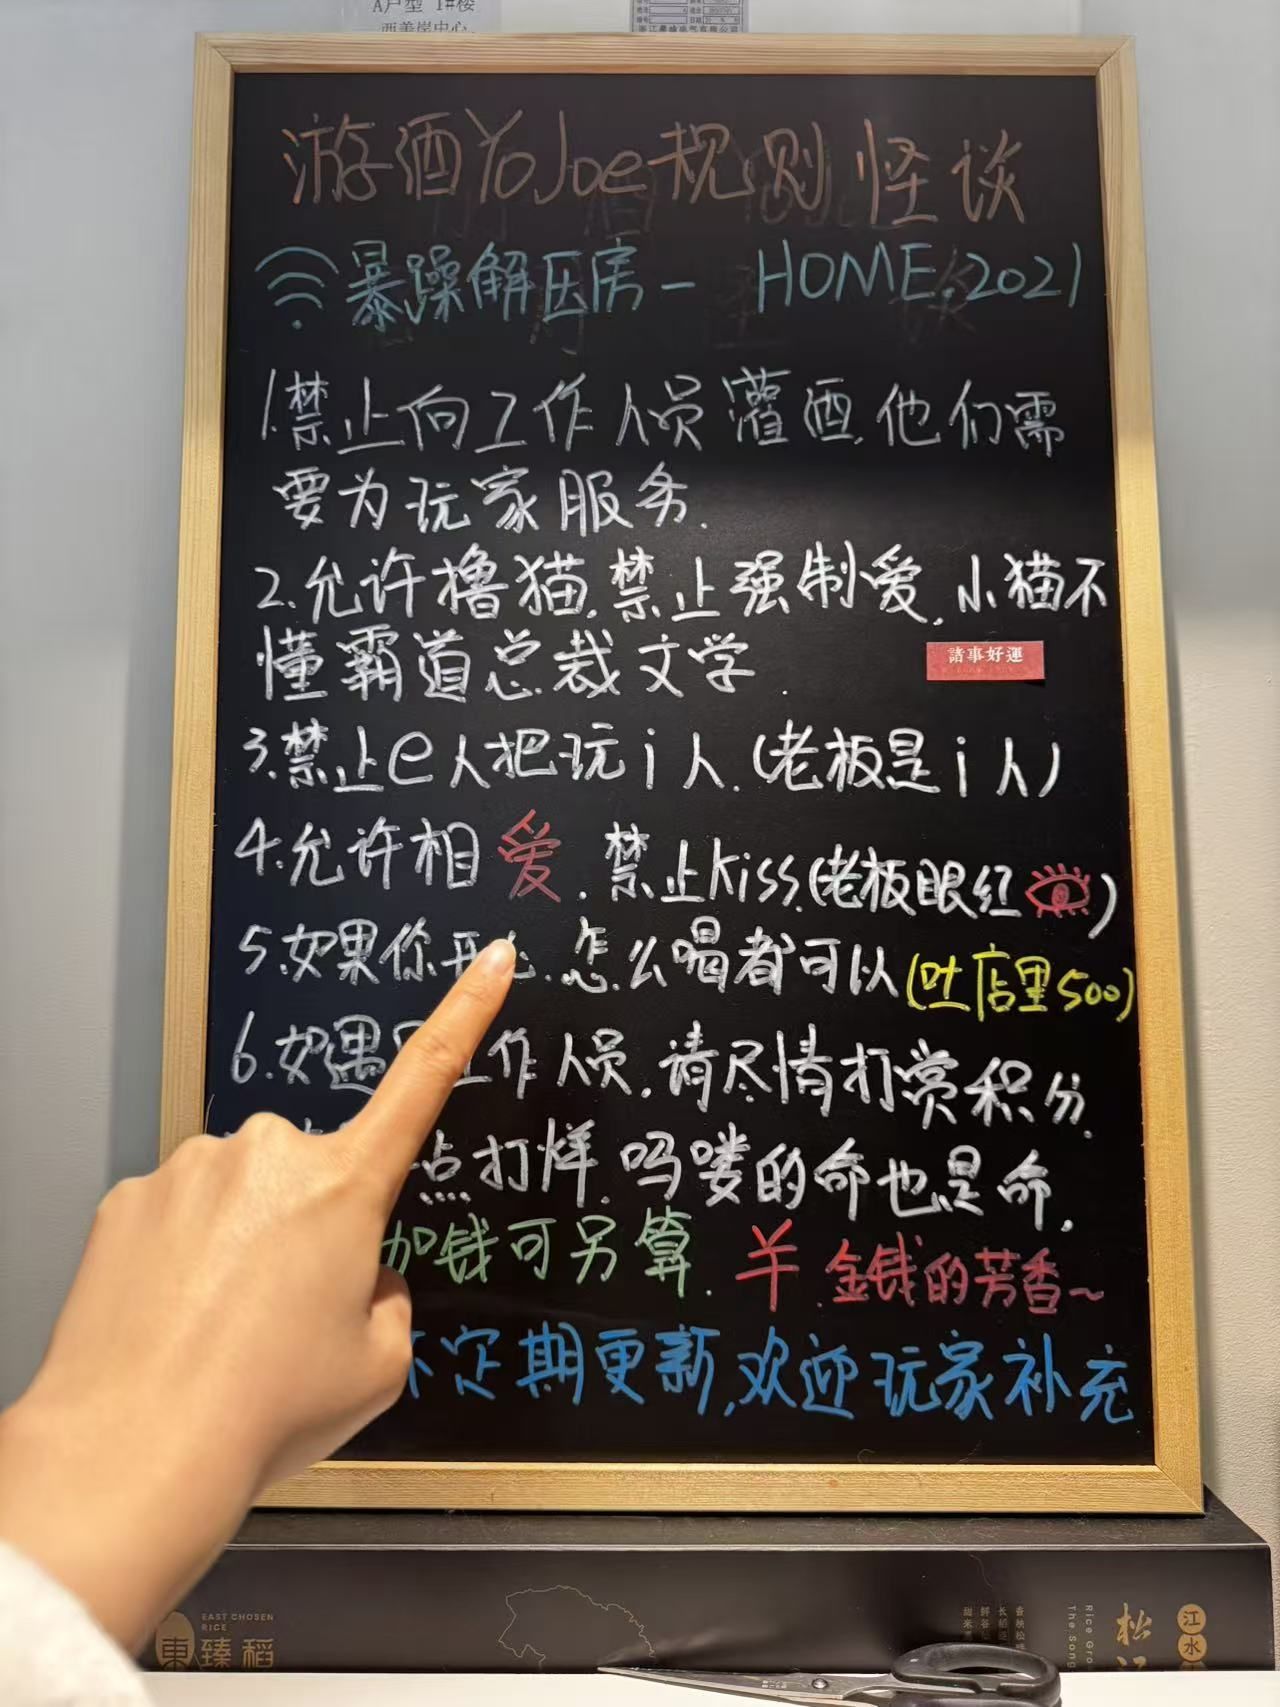 A户型 1#楼
西美岸中心
游酒YoJoe规则怪谈
暴躁解压房- HOME.2021
1.禁止向工作人员灌酒,他们需
要为玩家服务.
2.允许撸猫.禁止强制爱,小猫不
懂霸道总裁文学.
諸事好運
3.禁止e人把玩i人.(老板是i人)
4.允许相爱.禁止kiss.(老板眼红)
5.如果你开心.怎么喝都可以(吐店里500)
6.如遇 工作人员.请尽情打赏积分.
点打烊.吗喽的命也是命.
加钱可另算.羊.金钱的芳香~
不定期更新,欢迎玩家补充
EAST CHOSEN
RICE
東臻稻
松江
江水